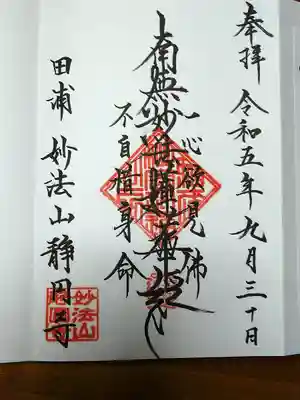 奉拝 令和五年九月三十日
一心欲見佛
南無妙法蓮華経
不自惜身命
田浦 妙法山静円寺
妙法山